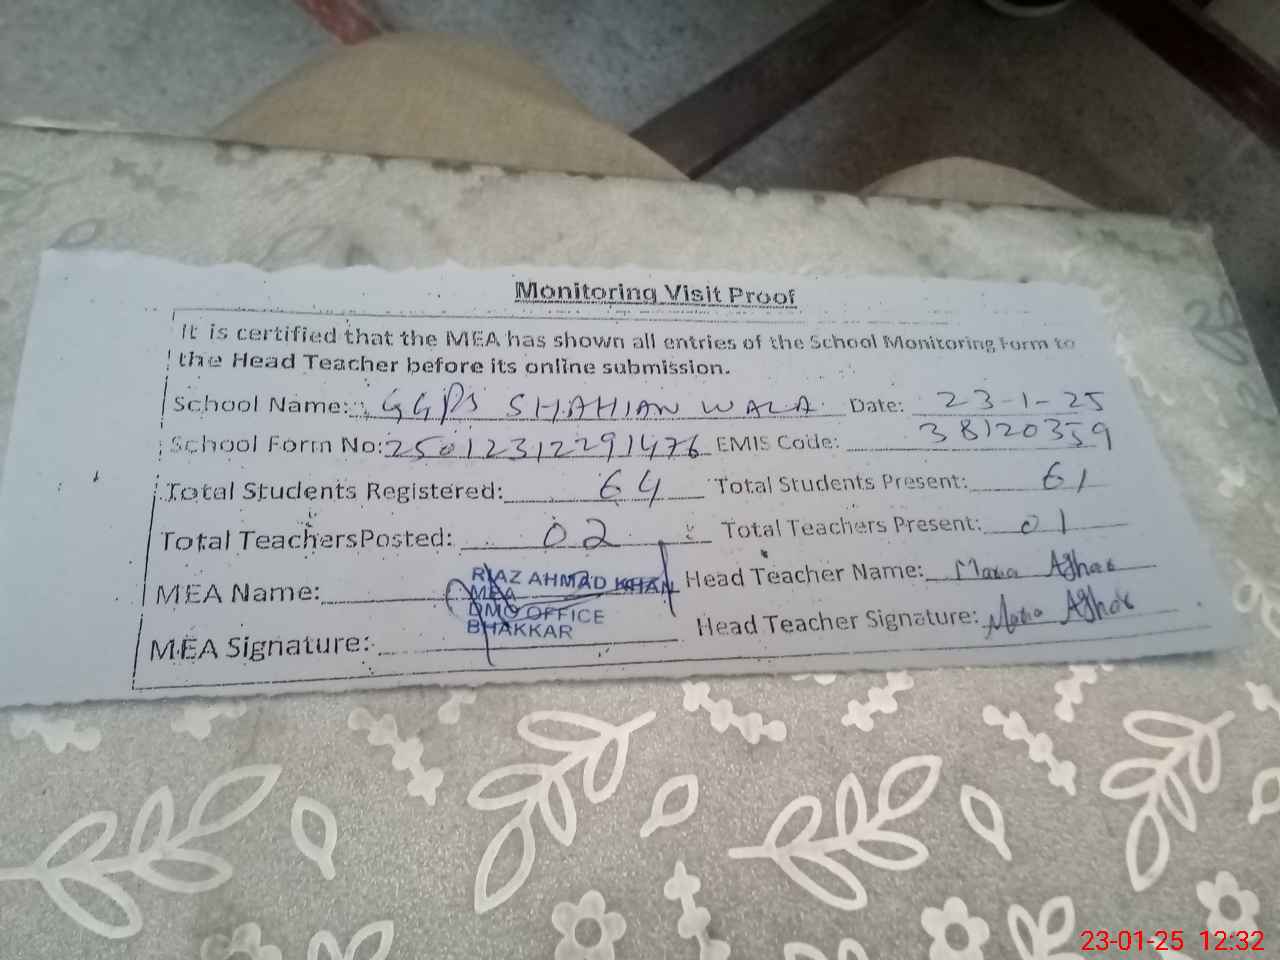 Monitoring Visit Proof
It is certified that the MEA has shown all entries of the School Monitoring Form to
the Head Teacher before its online submission.
School Name: GGPS SHAHIAN WALA Date: 23-1-25
School Form No: 25012312291476 EMIS Code: 38120359
Total Students Registered: 64 Total Students Present: 61
Total TeachersPosted: 02 Total Teachers Present: 01
MEA Name: RIAZ AHMAD KHAN Head Teacher Name: Maria Asghar
MEA
DMO OFFICE
BHAKKAR
MEA Signature: Head Teacher Signature: Maria Asghar
23-01-25 12:32